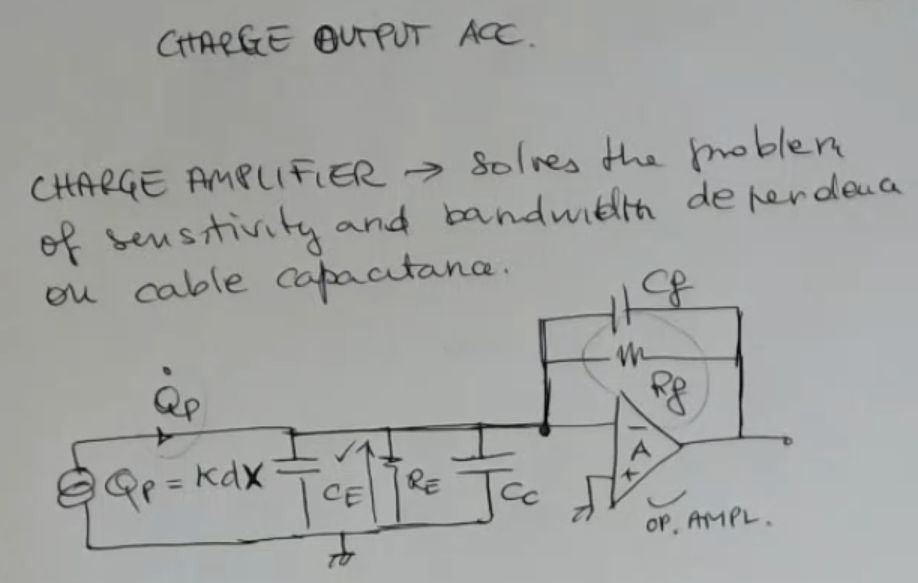 CHARGE OUTPUT ACC.
CHARGE AMPLIFIER → solves the problem
of sensitivity and bandwidth dependence
on cable capacitance.
Cf
Rf
Q̇p
Qp = KdX
CE
RE
Cc
−
A
+
OP. AMPL.